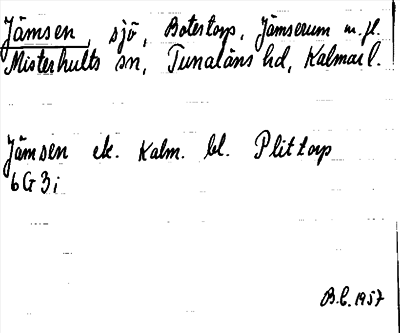 Jämsen, sjö, Botestorp, Jämserum m. fl.
Misterhults sn, Tunaläns hd, Kalmar l.
Jämsen ek. Kalm. bl. Plittorp
6G3i
B.L. 1957